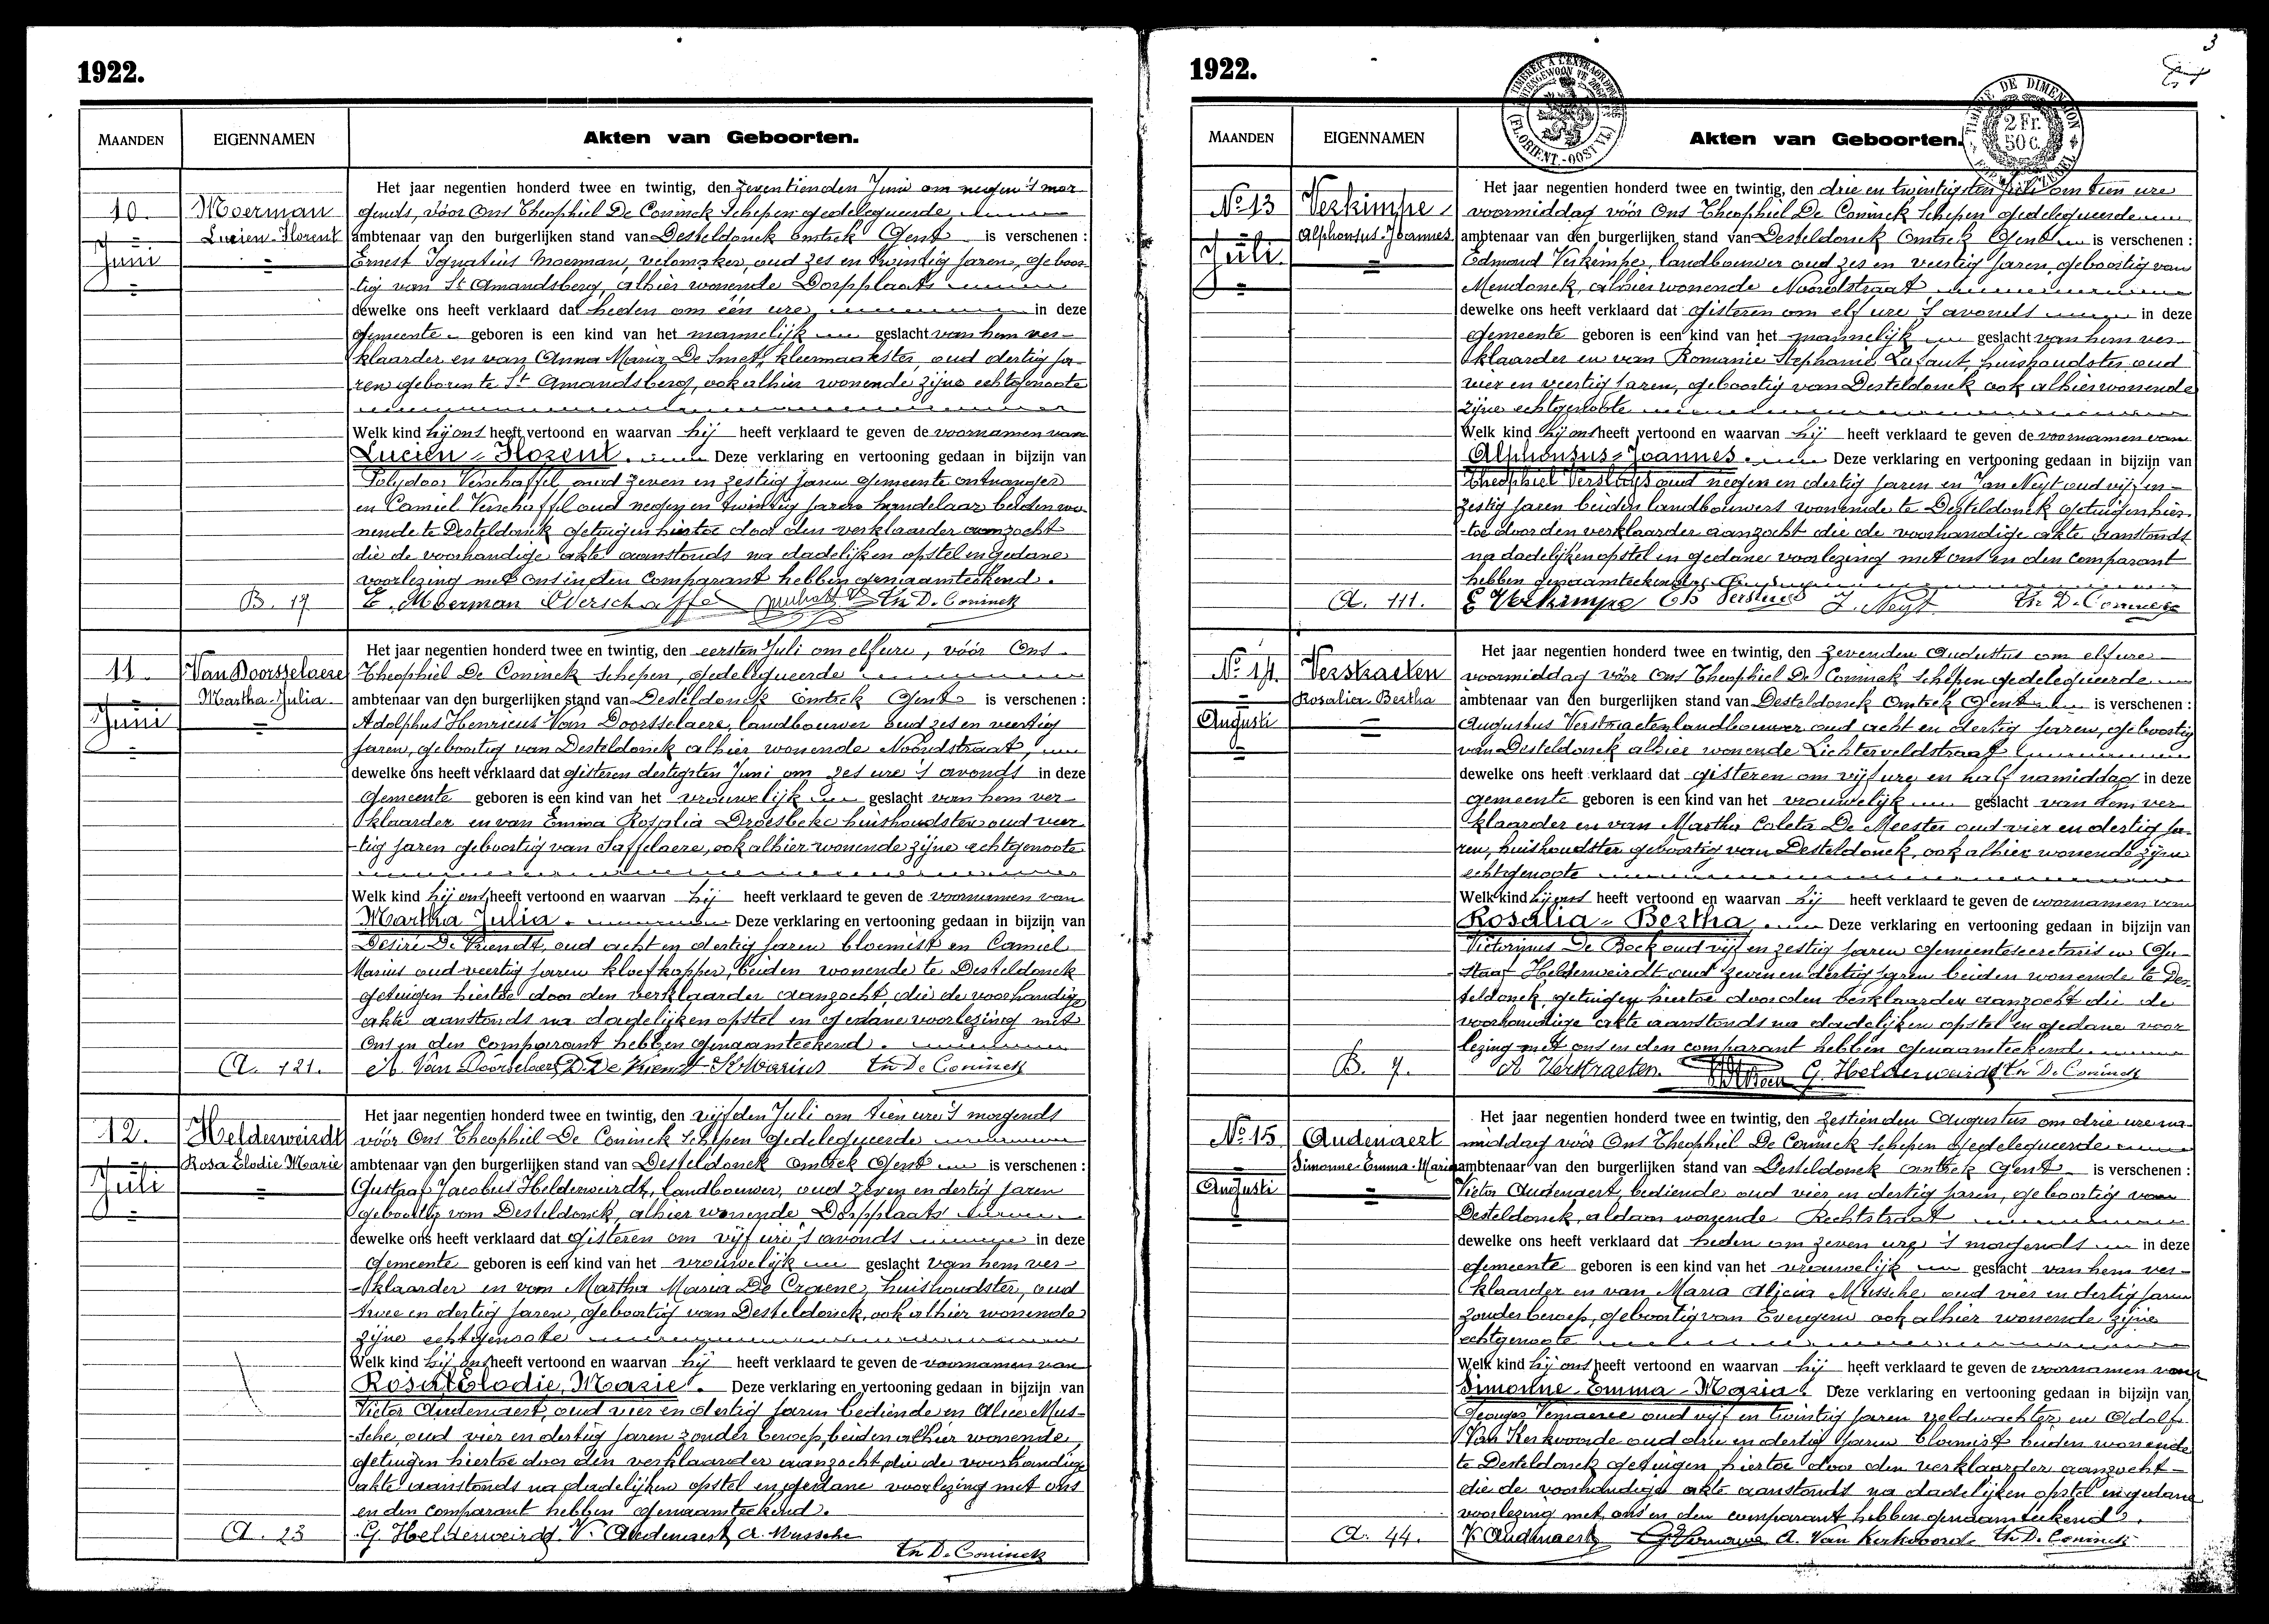 1922.
MAANDEN
EIGENNAMEN
Akten van Geboorten.
10.
Juni
Moerman
Lucien-Florent
B. 17
Het jaar negentien honderd twee en twintig, den zeventienden Juni om negen 's mor-
gends, vóór Ons Theophiel De Coninck Schepen gedelegueerde
ambtenaar van den burgerlijken stand van Desteldonck Omtrek Gent is verschenen :
Ernest Ignatius Moerman, velomaker, oud zes en twintig jaren, geboor-
tig van St Amandsberg, alhier wonende Dorpplaats
dewelke ons heeft verklaard dat heden om één ure in deze
gemeente geboren is een kind van het mannelijk geslacht van hem ver-
klaarder en van Anna Maria De Smet, kleermaakster, oud dertig ja-
ren geboren te St Amandsberg, ook alhier wonende zijne echtgenoote
Welk kind hij ons heeft vertoond en waarvan hij heeft verklaard te geven de voornamen van
Lucien-Florent. Deze verklaring en vertooning gedaan in bijzijn van
Polydoor Verschaffel oud zeven en zestig jaren gemeente ontvanger
en Camiel Verschaffel oud negen en twintig jaren handelaar beiden wo-
nende te Desteldonck getuigen hiertoe door den verklaarder aanzocht
die de voorhandige akte aanstonds na dadelijken opstel en gedane
voorlezing met ons en den comparant hebben genaamteekend.
E. Moerman Verschaffel Th D. Coninck
11.
Juni
Van Doorsselaere
Martha-Julia
A. 121.
Het jaar negentien honderd twee en twintig, den eersten Juli om elf ure, vóór Ons
Theophiel De Coninck Schepen, gedelegueerde
ambtenaar van den burgerlijken stand van Desteldonck Omtrek Gent is verschenen :
Adolphus Henricus Van Doorsselaere, landbouwer oud zes en veertig
jaren, geboortig van Desteldonck alhier wonende Noordstraat
dewelke ons heeft verklaard dat gisteren dertigsten Juni om zes ure 's avonds in deze
gemeente geboren is een kind van het vrouwelijk geslacht van hem ver-
klaarder en van Emma Rosalia Droesbeke huishoudster oud veer-
tig jaren geboortig van Saffelaere, ook alhier wonende zijne echtgenoote
Welk kind hij ons heeft vertoond en waarvan hij heeft verklaard te geven de voornamen van
Martha Julia. Deze verklaring en vertooning gedaan in bijzijn van
Desiré De Vriendt, oud acht en dertig jaren bloemist en Camiel
Marius oud veertig jaren kloefkapper, beiden wonende te Desteldonck
getuigen hiertoe door den verklaarder aanzocht, die de voorhandige
akte aanstonds na dadelijken opstel en gedane voorlezing met
Ons en den comparant hebben genaamteekend.
A. Van Doorselaere D. De Vriendt Marius Th De Coninck
12.
Juli
Helderweirdt
Rosa Elodie Marie
A. 23
Het jaar negentien honderd twee en twintig, den vijfden Juli om tien ure 's morgends
vóór Ons Theophiel De Coninck Schepen gedelegueerde
ambtenaar van den burgerlijken stand van Desteldonck Omtrek Gent is verschenen :
Gustaaf Jacobus Helderweirdt, landbouwer, oud zeven en dertig jaren
geboortig van Desteldonck, alhier wonende Dorpplaats
dewelke ons heeft verklaard dat gisteren om vijf ure 's avonds in deze
gemeente geboren is een kind van het vrouwelijk geslacht van hem ver-
klaarder en van Martha Maria De Craene, huishoudster, oud
twee en dertig jaren, geboortig van Desteldonck, ook alhier wonende
zijne echtgenoote
Welk kind hij ons heeft vertoond en waarvan hij heeft verklaard te geven de voornamen van
Rosa Elodie, Marie. Deze verklaring en vertooning gedaan in bijzijn van
Victor Audenaert, oud vier en dertig jaren bediende en Alice Mus-
sche, oud vier en dertig jaren zonder beroep, beiden alhier wonende,
getuigen hiertoe door den verklaarder aanzocht, die de voorhandige
akte aanstonds na dadelijken opstel en gedane voorlezing met ons
en den comparant hebben genaamteekend.
G. Helderweirdt. V. Audenaert A. Mussche
Th D. Coninck
3
1922.
TIMBRE A L'EXTRAORDINAIRE
(FL. ORIENT. - OOST VL.)
TIMBRE DE DIMENSION
2 Fr.
50 c.
MAANDEN
EIGENNAMEN
Akten van Geboorten.
No 13
Juli.
Verkimpe
Alphonsus-Joannes
A. 111.
Het jaar negentien honderd twee en twintig, den drie en twintigsten Juli om tien ure
voormiddag vóór Ons Theophiel De Coninck Schepen gedelegueerde
ambtenaar van den burgerlijken stand van Desteldonck Omtrek Gent is verschenen :
Edmond Verkimpe, landbouwer oud zes en veertig jaren, geboortig van
Mendonck, alhier wonende Noordstraat
dewelke ons heeft verklaard dat gisteren om elf ure 's avonds in deze
gemeente geboren is een kind van het mannelijk geslacht van hem ver-
klaarder en van Romanie Stephanie Lafaut, huishoudster oud
vier en veertig jaren, geboortig van Desteldonck ook alhier wonende
zijne echtgenoote
Welk kind hij ons heeft vertoond en waarvan hij heeft verklaard te geven de voornamen van
Alphonsus-Joannes. Deze verklaring en vertooning gedaan in bijzijn van
Theophiel Versluys oud negen en dertig jaren en Jan Neyt oud vijf en
zestig jaren beiden landbouwers wonende te Desteldonck getuigen hier-
toe door den verklaarder aanzocht die de voorhandige akte aanstonds
na dadelijken opstel en gedane voorlezing met ons en den comparant
hebben genaamteekend.
E Verkimpe Th Versluys J. Neyt Th D. Coninck
No 14.
Augusti
Verstraeten
Rosalia-Bertha
B. 7.
Het jaar negentien honderd twee en twintig, den zevenden Augustus om elf ure
voormiddag vóór Ons Theophiel De Coninck Schepen gedelegueerde
ambtenaar van den burgerlijken stand van Desteldonck Omtrek Gent is verschenen :
Augustus Verstraeten landbouwer oud acht en dertig jaren, geboortig
van Desteldonck alhier wonende Lichterveldstraat
dewelke ons heeft verklaard dat gisteren om vijf ure en half namiddag in deze
gemeente geboren is een kind van het vrouwelijk geslacht van hem ver-
klaarder en van Martha Coleta De Meester oud vier en dertig ja-
ren, huishoudster geboortig van Desteldonck, ook alhier wonende zijne
echtgenoote
Welk kind hij ons heeft vertoond en waarvan hij heeft verklaard te geven de voornamen van
Rosalia-Bertha. Deze verklaring en vertooning gedaan in bijzijn van
Victorinus De Bock oud vijf en zestig jaren gemeentesecretaris en Gu-
staaf Helderweirdt oud zeven en dertig jaren beiden wonende te Des-
teldonck, getuigen hiertoe door den verklaarder aanzocht die de
voorhandige akte aanstonds na dadelijken opstel en gedane voor
lezing met ons en den comparant hebben genaamteekend.
A Verstraeten. G. Helderweirdt Th D. Coninck
No 15
Augusti
Audenaert
Simonne-Emma-Maria
A. 44.
Het jaar negentien honderd twee en twintig, den zestienden Augustus om drie ure na-
middag vóór Ons Theophiel De Coninck Schepen gedelegueerde
ambtenaar van den burgerlijken stand van Desteldonck Omtrek Gent is verschenen :
Victor Audenaert, bediende oud vier en dertig jaren, geboortig van
Desteldonck, aldaar wonende Rechtstraat
dewelke ons heeft verklaard dat heden om zeven ure 's morgends in deze
gemeente geboren is een kind van het vrouwelijk geslacht van hem ver-
klaarder en van Maria Alicia Mussche oud vier en dertig jaren
zonder beroep, geboortig van Evergem ook alhier wonende zijne
echtgenoote
Welk kind hij ons heeft vertoond en waarvan hij heeft verklaard te geven de voornamen van
Simonne-Emma-Maria. Deze verklaring en vertooning gedaan in bijzijn van
Georges oud vijf en twintig jaren veldwachter en Adolf
Van Kerkvoorde oud drie en dertig jaren bloemist beiden wonende
te Desteldonck getuigen hiertoe door den verklaarder aanzocht
die de voorhandige akte aanstonds na dadelijken opstel en gedane
voorlezing met ons en den comparant hebben genaamteekend.
V. Audenaert A. Van Kerkvoorde Th D. Coninck